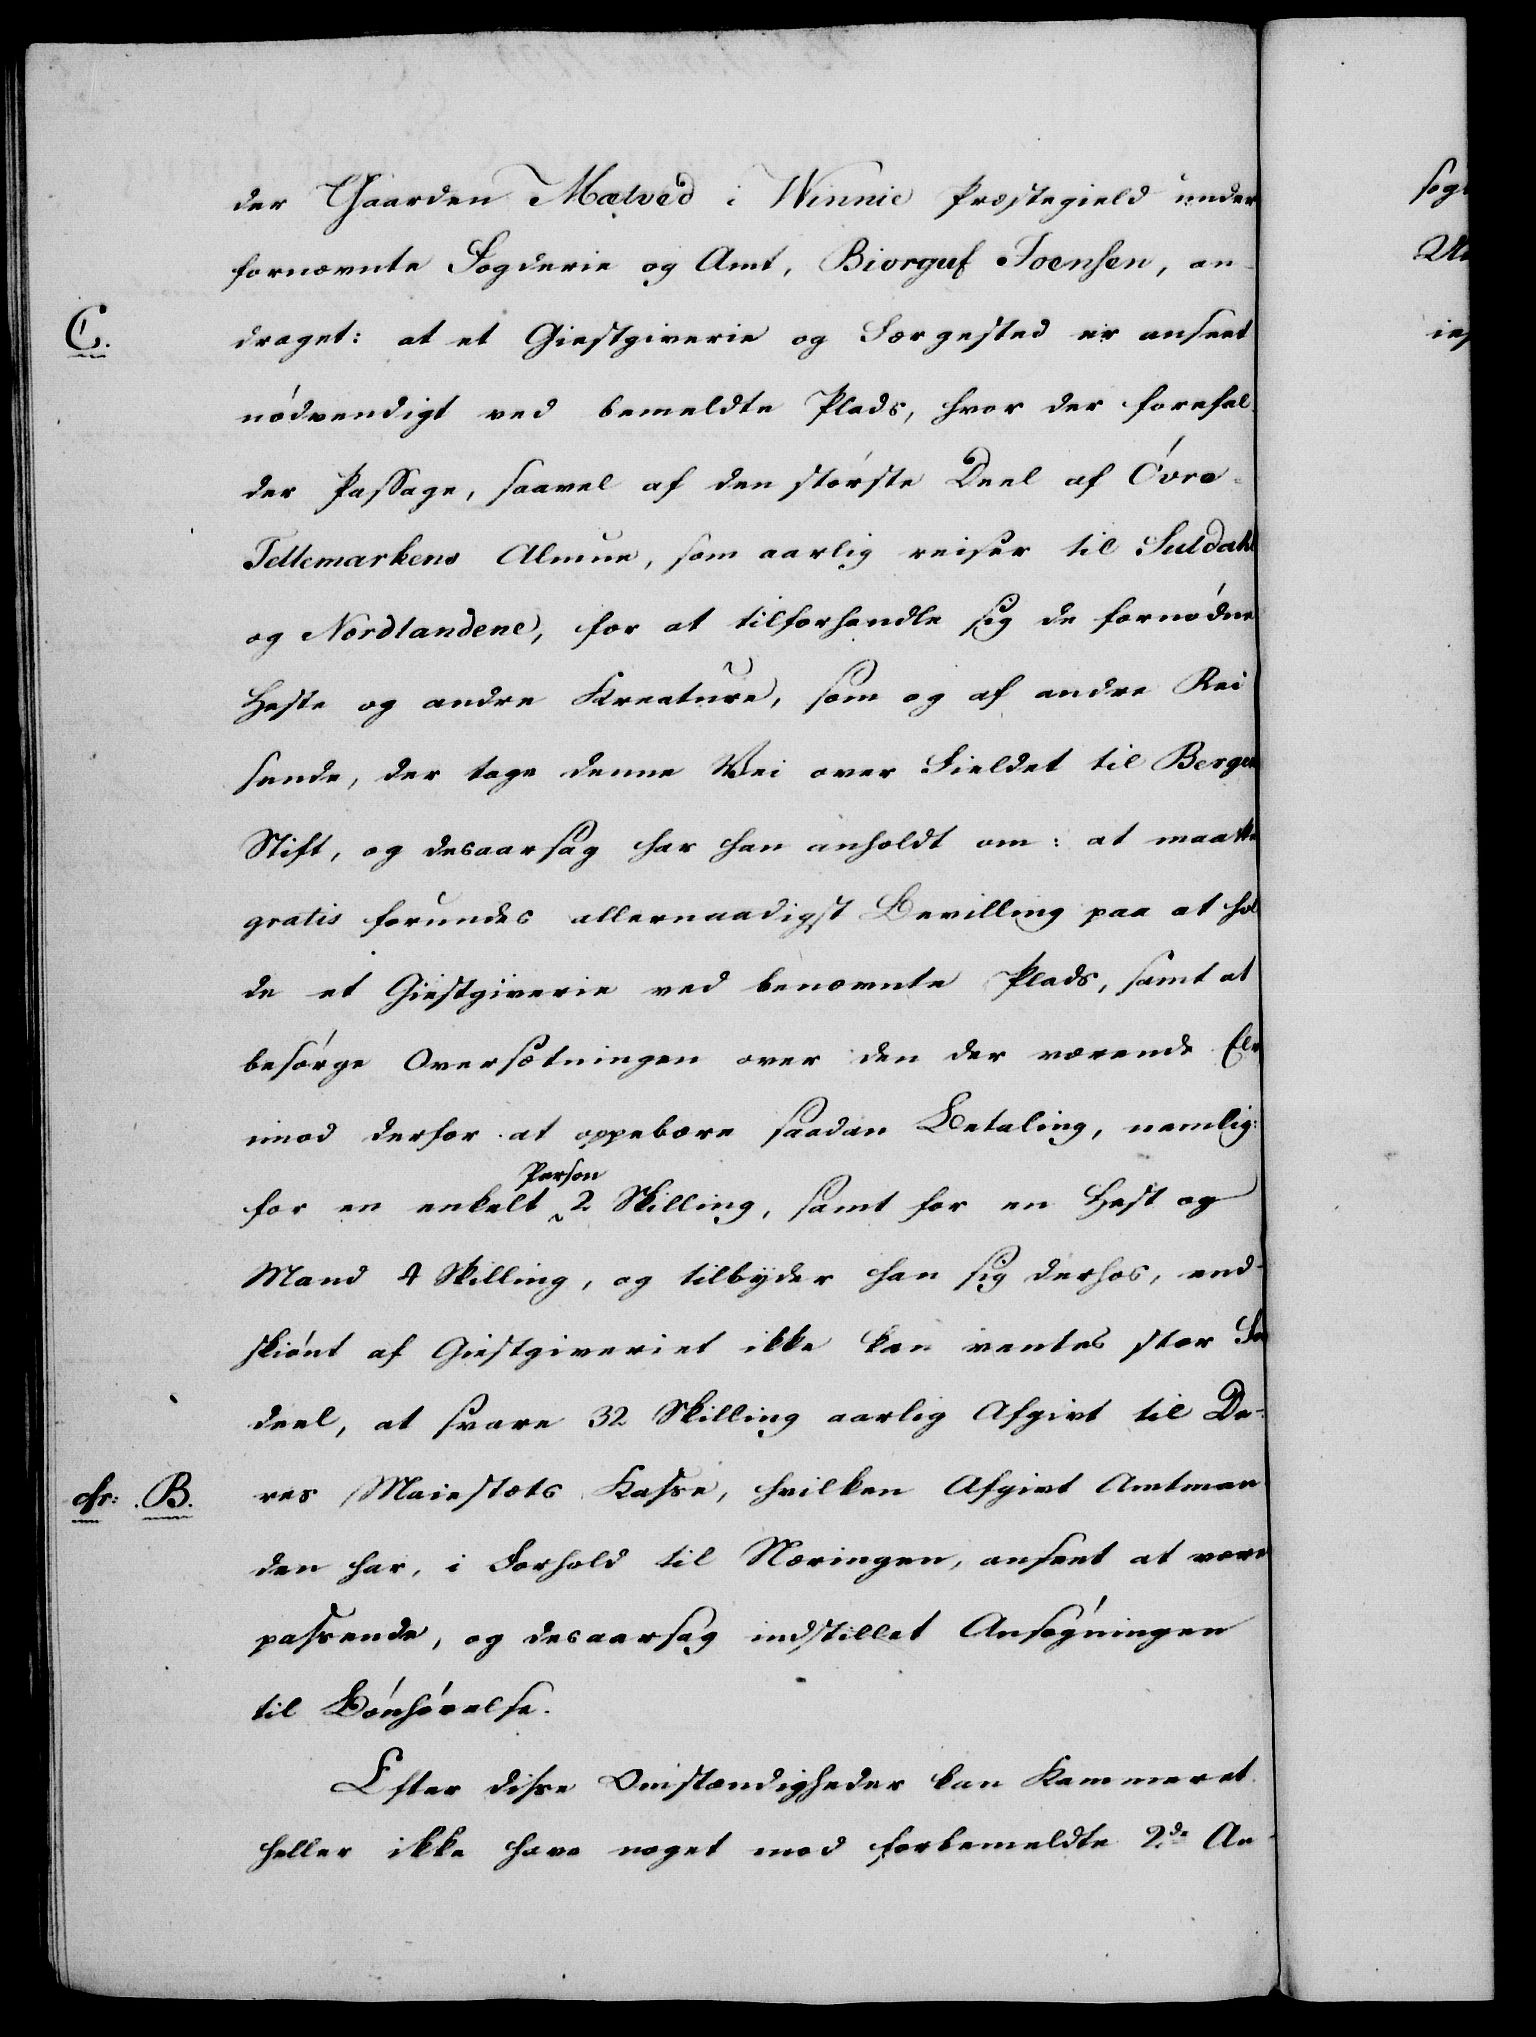 der Gaarden Mælved i Winnie Præstegield under
fornævnte Fogderie og Amt, Biorguf Joensen, an-
C.
draget: at et Giestgiverie og Færgested er anseet
nödvendigt ved bemeldte Plads, hvor der forefal-
der Passage, saavel af den störste Deel af Övre-
Tellemarkens Almue, som aarlig reiser til Suldahl
og Nordlandene, for at tilforhandle sig de fornödne
Heste og andre Kreature, som og af andre Rei
sende, der tage denne Vei over Fieldet til Bergen
Stift, og desaarsag har han anholdt om: at maatte
gratis forundes allernaadigst Bevilling paa at hol
de et Giestgiverie ved benævnte Plads, samt at
besörge Oversætningen over den der værende Elv
imod derfor at oppebære saadan Betaling, nemlig:
Person
for en enkelt 2 Skilling, samt for en Hest og
Mand 4 Skilling, og tilbyder han sig derhos, end-
skiönt af Giestgiveriet ikke kan ventes stor For
deel, at svare 32 Skilling aarlig Afgivt til De-
cfr: B.
res Maiestæts Kasse, hvilken Afgivt Amtman
den har, i Forhold til Næringen, anseet at være
passende, og desaarsag indstillet Ansögningen
til Bönhörelse.
Efter disse Omstændigheder kan Kammeret
heller ikke have noget mod forbemeldte 2de An-